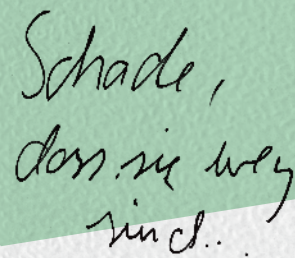 Schade,
dass sie weg
sind..